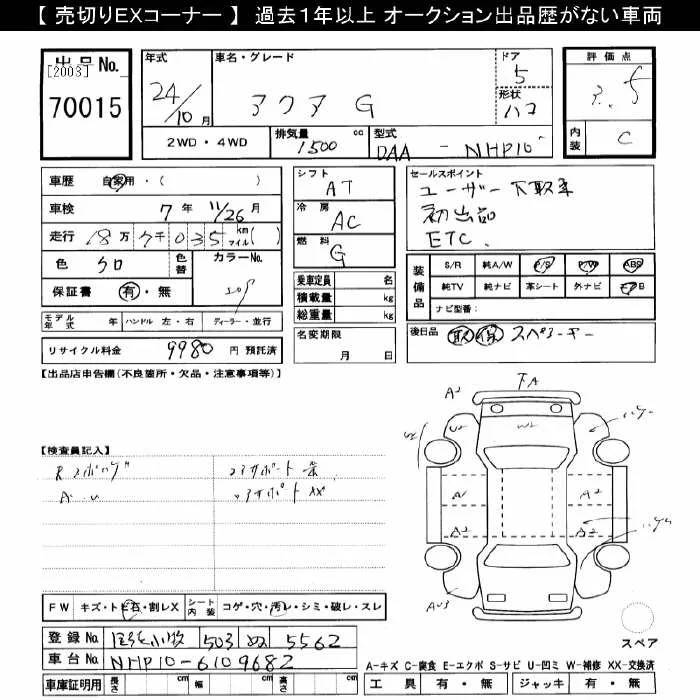 【 売切りEXコーナー 】 過去１年以上 オークション出品歴がない車両
出品 No.
[2003]
70015
年式
24/10 月
車名・グレード
アクア G
ドア
5
形状
ハコ
評価点
3.5
内装
C
2WD・4WD
排気量
1500 cc
型式
DAA - NHP10
車歴 自家用・( )
車検 7年 11/26月
走行 18万7千035 km マイル( )
色 クロ
色替
カラーNo.
209
保証書 有・無
モデル年式 年 ハンドル 左・右 ディーラー・並行
リサイクル料金 9980 円 預託済
シフト
AT
冷房
AC
燃料
G
乗車定員 名
積載量 kg
総重量 kg
名変期限
月 日
セールスポイント
ユーザー下取車
初出品
ETC.
装備品
S/R 純A/W P/S P/W ABS
純TV 純ナビ 革シート 外ナビ エアB
ナビ型番：
後日品 取 保 スペアキー
【出品店申告欄(不良箇所・欠品・注意事項等)】
【検査員記入】
A・U
コアサポート
コアサポート XX
FW キズ・トビ石・割レX シート内装 コゲ・穴・汚レ・シミ・破レ・スレ
登録 No. 503 5562
車台 No. NHP10-6109682
車庫証明用 長さ cm 幅 cm 高さ cm
FA
A2
U2
W2
A1
A2
A2
A2
AU3
スペア
A-キズ C-腐食 E-エクボ S-サビ U-凹ミ W-補修 XX-交換済
工具 有・無 ジャッキ 有・無